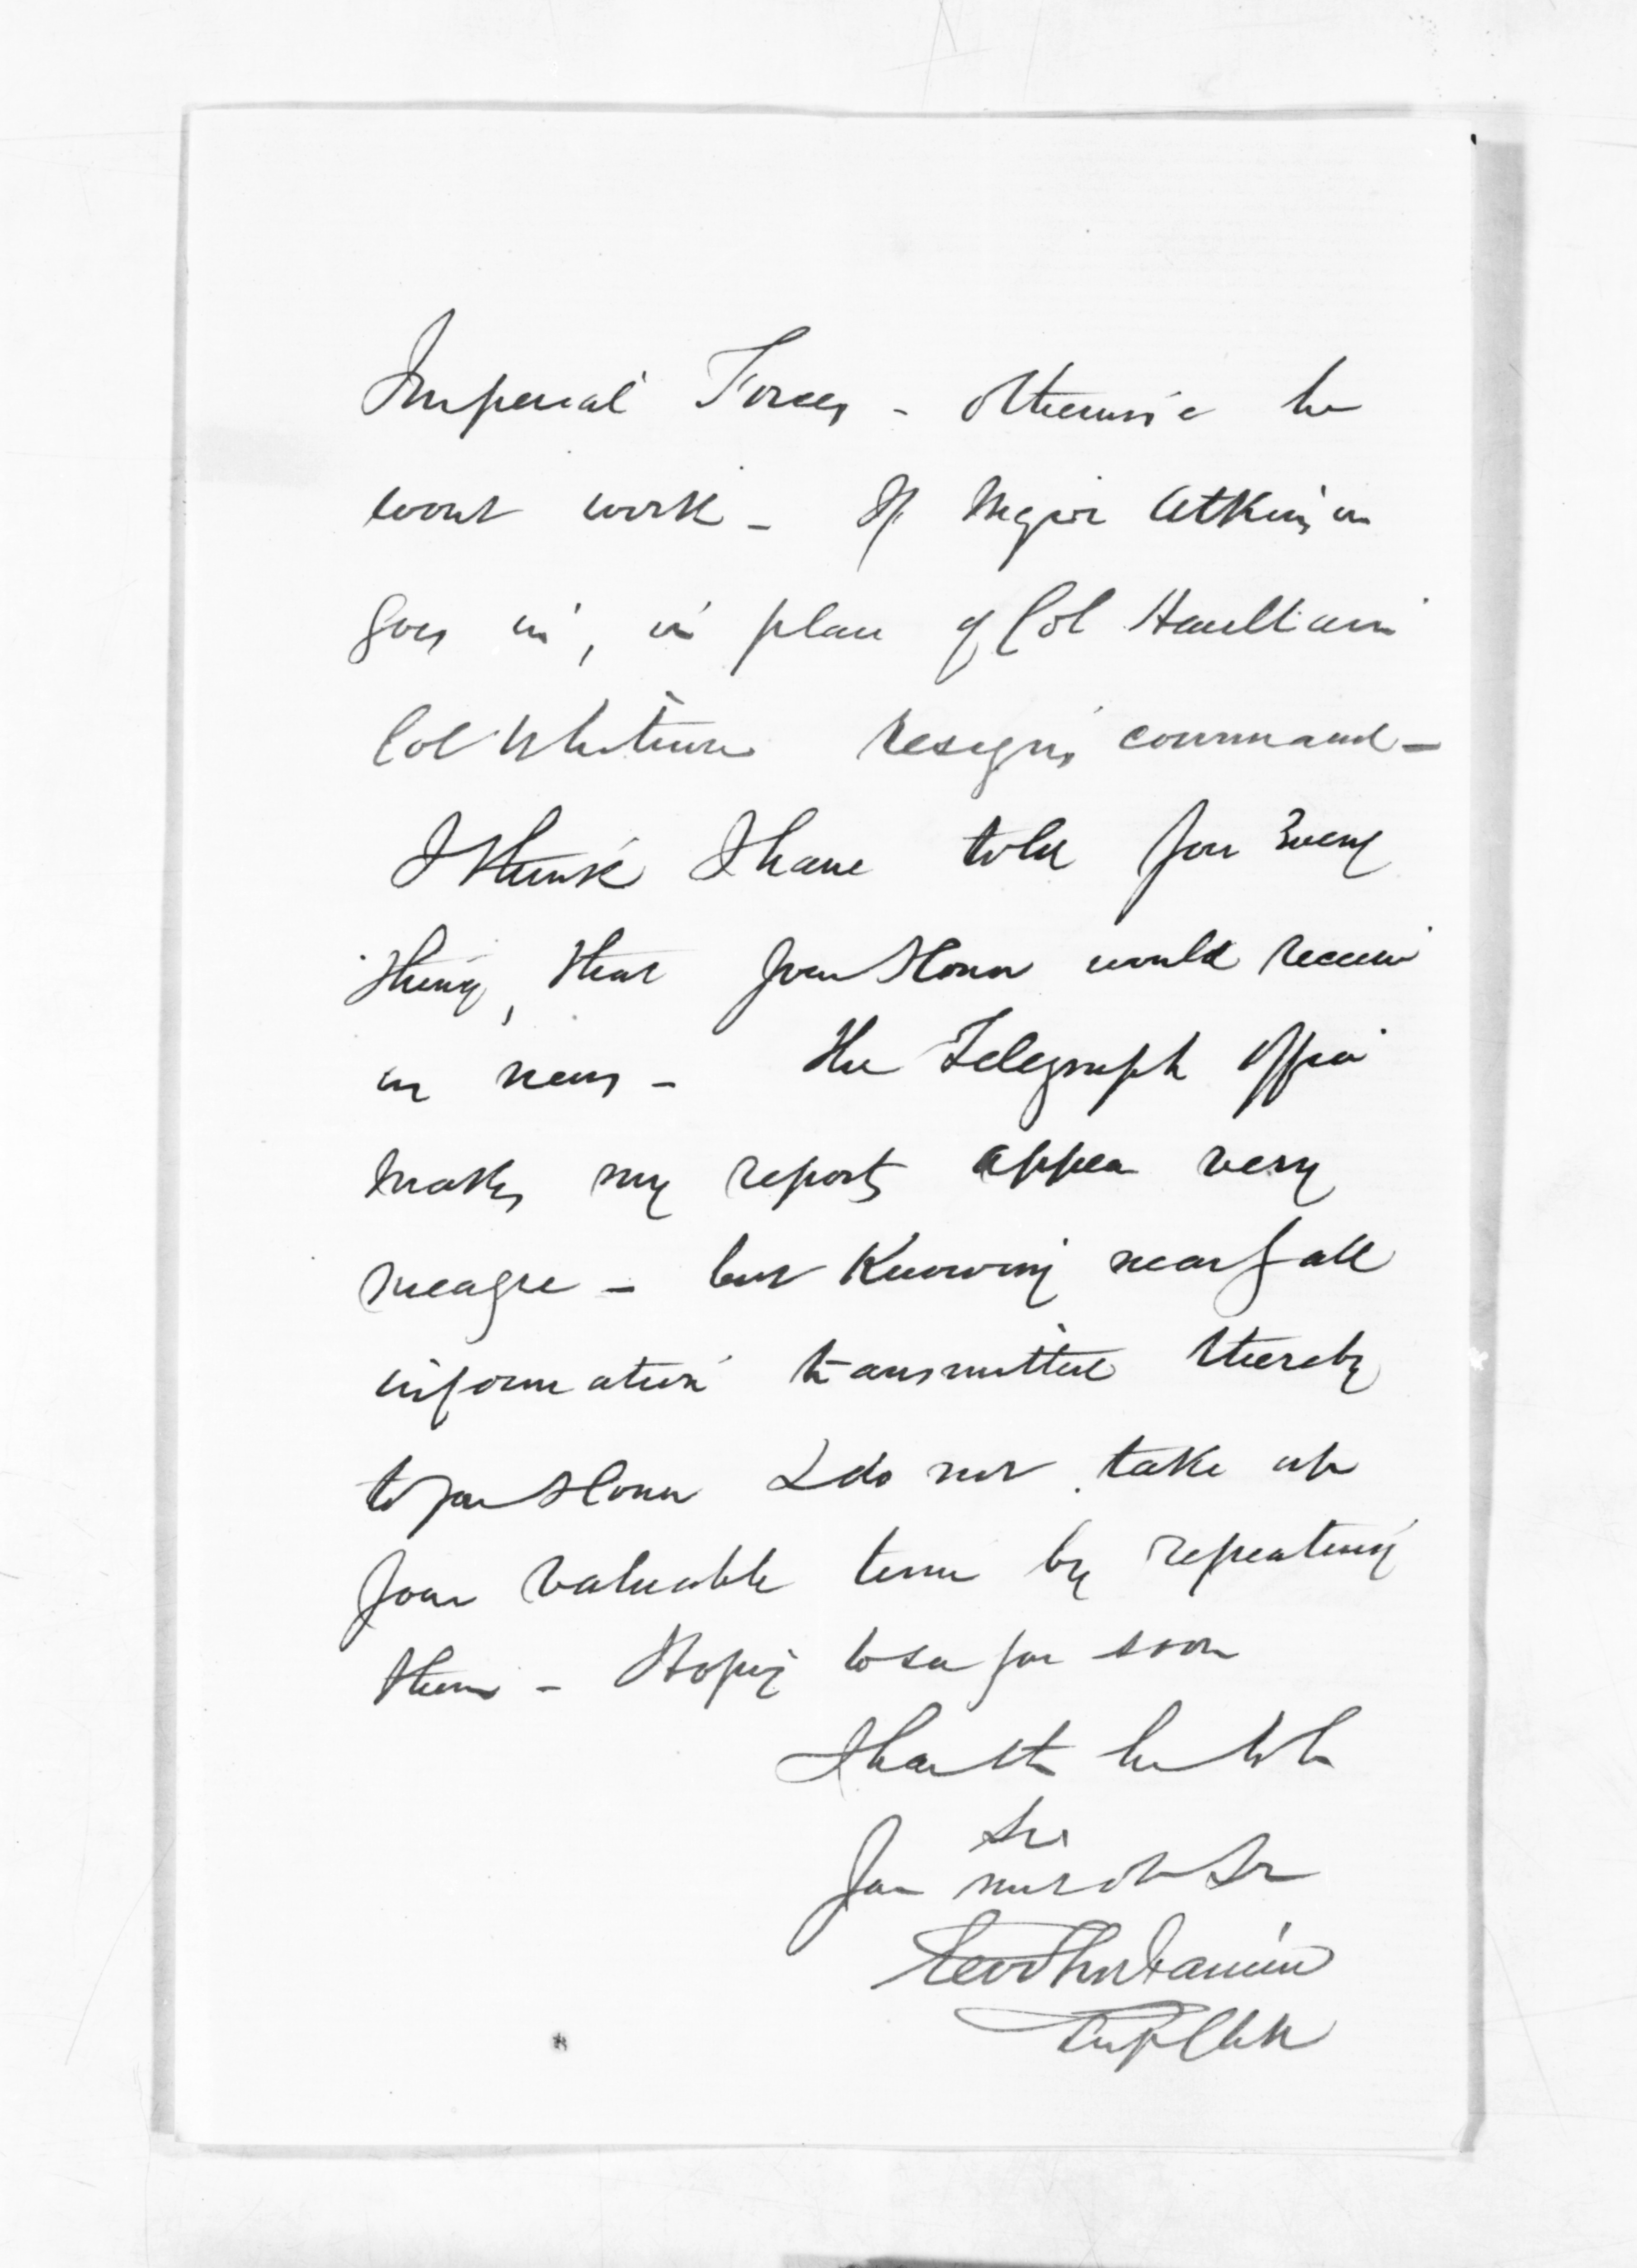 Imperial Forces - otherwise he
wont work - If Major Atkinson
goes in, in place of Col Haultain
Col Whitmore resigns command -
I think I have told you every
thing, that your Honor would receive
as news - The Telegraph Office
makes my reports appear very
meagre - but knowing nearly all
information transmitted thereby
to your Honor I do not take up
your valuable time by repeating
them - Hoping to see you soon
I have the honor to be
Sir
Your most obt Sr